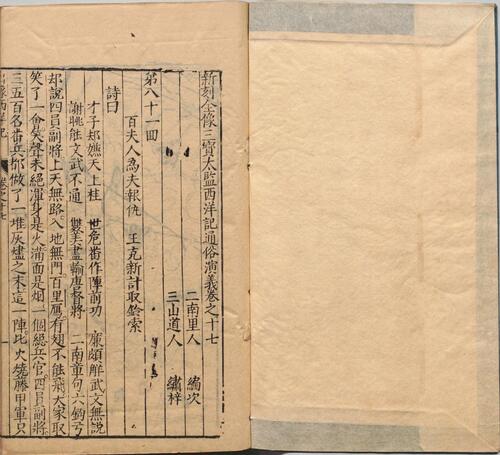 新刻全像三寶太監西洋記通俗演義卷之十七
二南里人 編次
三山道人 繡梓
第八十一回
百夫人為夫報仇 王克新計取鈴索
詩曰
才子却嫌天上桂 世危番作陣前功 廉頗解武文無說
謝眺能文武不通 雙美盡輸唐督將 二南章句六鈞弓
却說四員副將上天無路入地無門百里鴈有翅不能飛大家取
笑了一會笑聲未絕渾身是火滿面是烟一個總兵官四員副將
三五百名番兵都做了一堆灰燼之末這一陣比火燒藤甲軍只